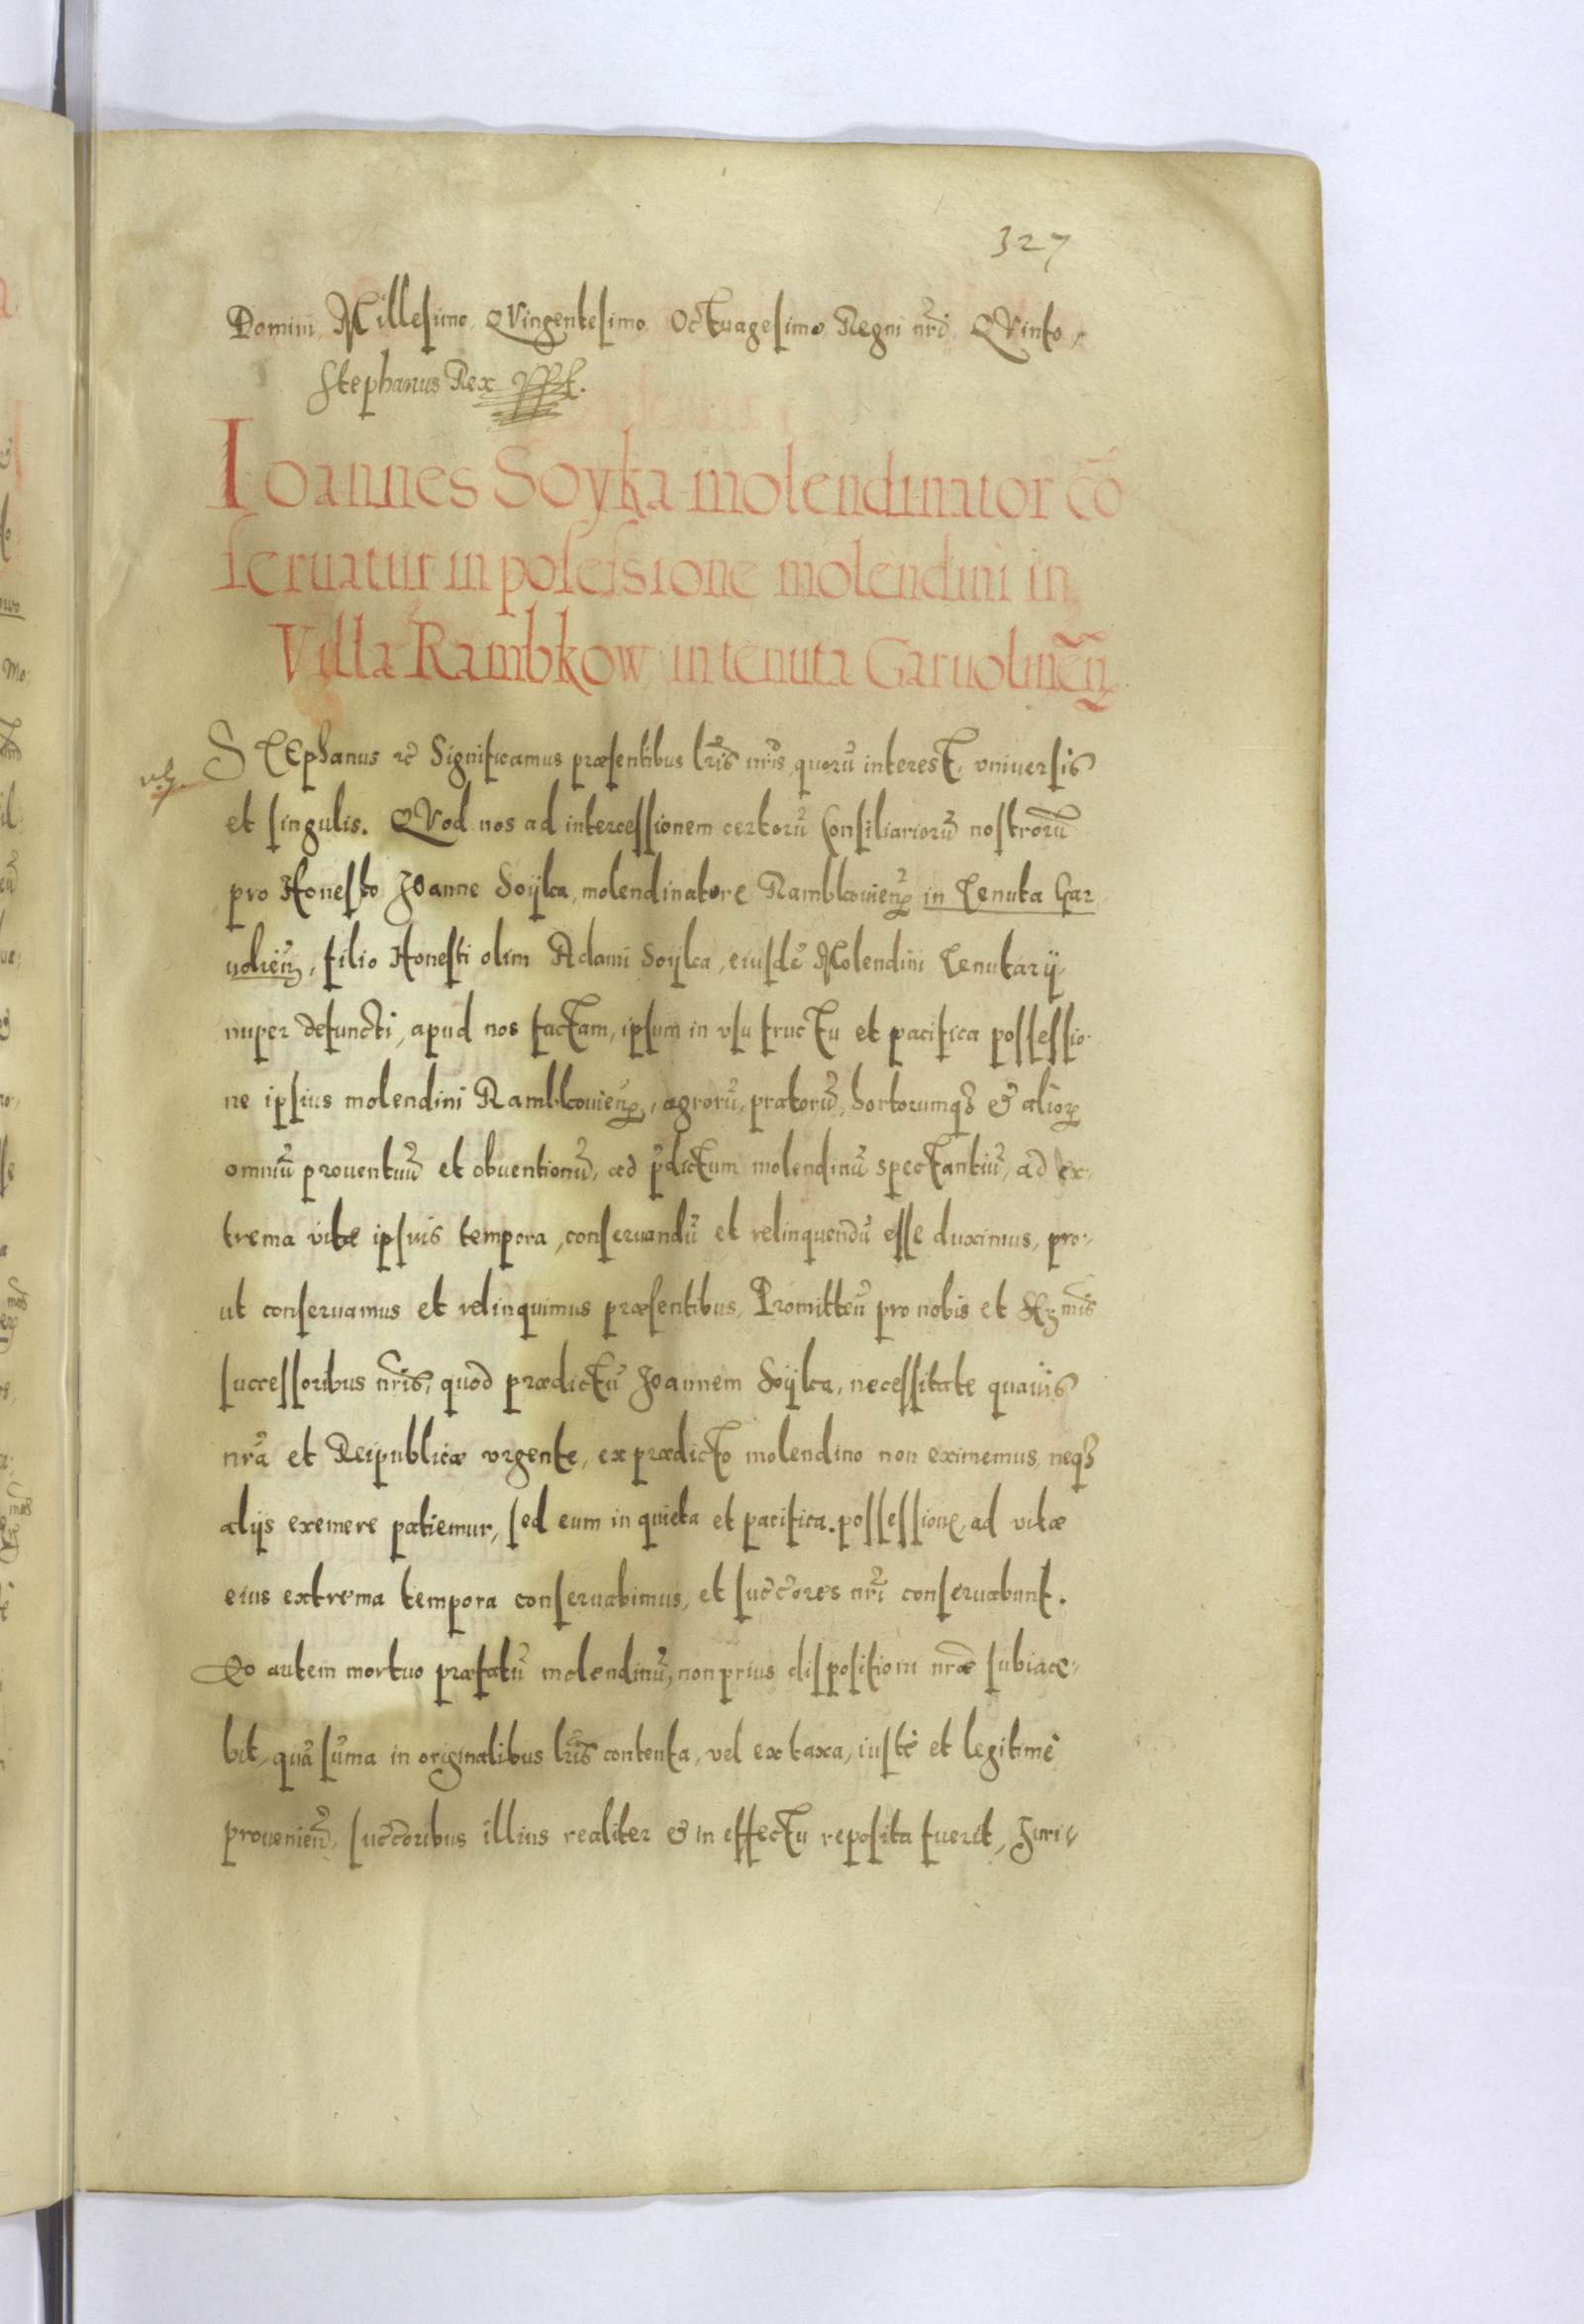 327
Domini Millesimo QVingentesimo Octuagesimo Regni nri QVinto
Stephanus Rex
Ioannes Soyka molendinator cō
seruatur in possessione molendini in
Villa Rambkow in tenuta Garuolinen̄
STEphanus rc̄ Significamus præsentibus lris nris quorū interest, vniuersis
et singulis. QVod nos ad intercessionem certorū Consiliariorū nostrorū
pro Honesto Joanne Soyka, molendinatore Rambkouien̄ in Tenuta Gar
uolien̄, filio Honesti olim Adami Soyka, eiusdē Molendini Tenutarij
nuper defuncti, apud nos factam, ipsum in vsu fructu et pacifica possessio-
ne ipsius molendini Rambkouien̄, agrorū, pratorū, hortorumq3 & alior̄
omniū prouentuū et obuentionū, ad p̄dictum molendinū spectantiū, ad ex-
trema vitæ ipsius tempora, conseruandū et relinquendū esse duximus, pro-
ut conseruamus et relinquimus præsentibus, Promitten̄ pro nobis et Srmis
successoribus nris, quod prædictū Joannem Soyka, necessitate quauis
nrā et Reipublicæ vrgente, ex prædicto molendino non eximemus, neq3
alijs exemere patiemur, sed eum in quieta et pacifica possessione, ad vitæ
eius extrema tempora conseruabimus, et succ̄ores nrī conseruabunt.
Eo autem mortuo præfatū molendinū, non prius dispositioni nræ subiace-
bit, quā sūma in originalibus lris contenta, vel ex taxa, iustè et legitimè
prouenien̄, succ̄oribus illius realiter & in effectu reposita fuerit, Juri-